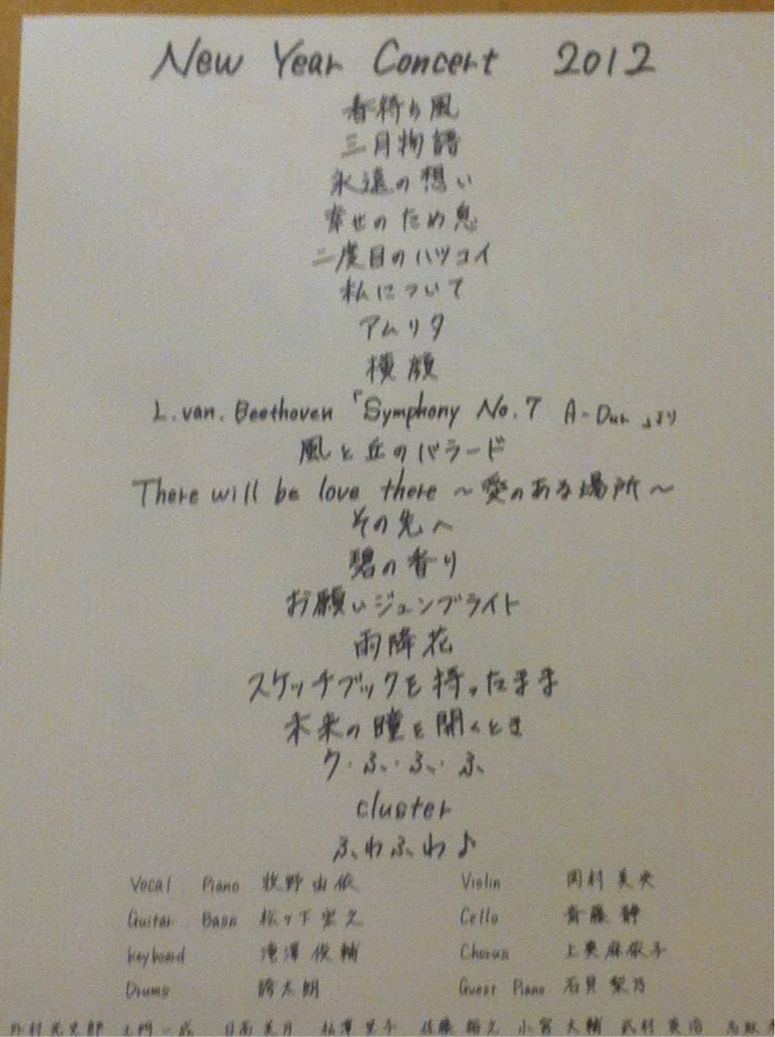 New Year Concert 2012
春待ち風
三月物語
永遠の想い
幸せのため息
二度目のハツコイ
私について
アムリタ
横顔
L.van.Beethoven「Symphony No.7 A-Dur」より
風と丘のバラード
There will be love there ～愛のある場所～
その先へ
碧の香り
お願いジュンブライト
雨降花
スケッチブックを持ったまま
未来の瞳を開くとき
ウ・ふ・ふ・ふ
cluster
ふわふわ♪
Vocal Piano 牧野由依
Violin 岡村美央
Guitar Bass 松ヶ下宏之
Cello 斎藤
Keyboard 滝澤俊輔
Chorus 上奥麻依子
Drums 太朗
Guest Piano 石貝梨乃
土門一成 佐藤 小宮大輔